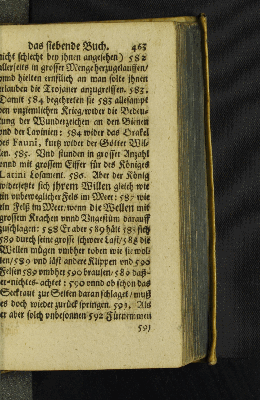 das siebende Buch. 463
nicht schlecht bey jhnen angesehen) 582
allerseits in grosser Menge herzugelauffen/
vnnd hielten ernstlich an man solte jhnen
erlauben die Trojaner anzugreiffen. 583.
Damit 584 begehreten sie 583 allesampt
den vnziemlichen Krieg/wider die Bedeu-
tung der Wunderzeichen an den Bienen
vnd der Lavinien: 584 wider das Orakel
des Fauni, kurtz wider der Götter Wil-
len. 585. Vnd stunden in grosser Anzahl
vnnd mit grossem Eiffer für des Königes
Latini Losament. 586. Aber der König
widersetzte sich jhrem Willen gleich wie
ein vnbeweglicher Fels im Meer: 587 wie
ein Fels im Meer/wenn die Wellen mit
grossem Krachen vnnd Vngestüm darauff
zuschlagen: 588 Er aber 589 hält sich
589 durch seine grosse schwere Last/588 die
Wellen mügen vmbher toben wie sie wol-
len/589 vnd läst andere Klippen vnd 590
Felsen 589 vmbher 590 brausen/589 daß-
er-nichtes-achtet: 590 vnnd ob schon das
Seekraut zur Seiten daran schlaget/muß
es doch wieder zurück springen. 591. Als
er aber solch vnbesonnen 592 Fürnemmen
591